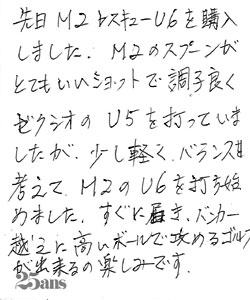 先日M2レスキューU6を購入
しました．M2のスプーンが
とてもいいショットで調子良く
ゼクシオのU5を打っていま
したが．少し軽く．バランスを
考えて．M2のU6を打ち始
めました．すぐに届き．バンカー
越えに高いボールで攻めるゴルフ
が出来るの楽しみです．
25ans